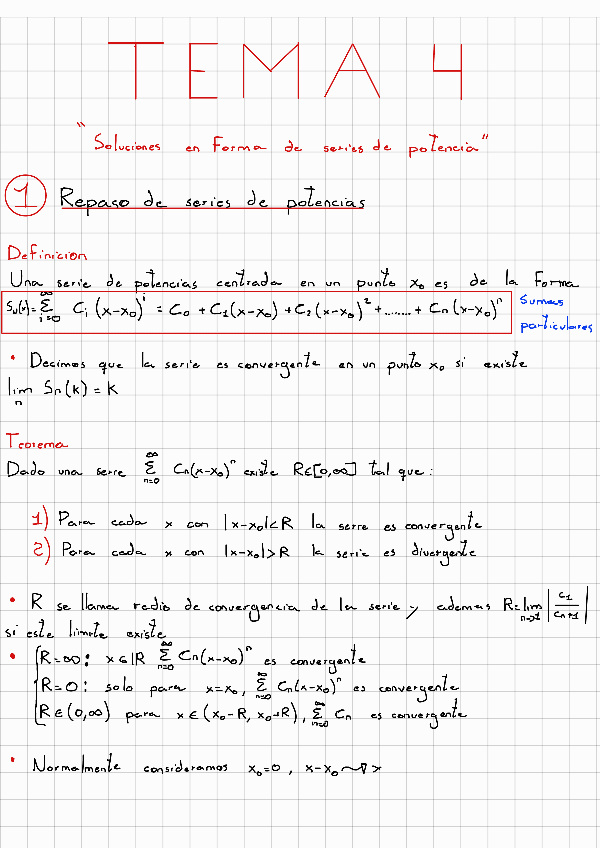 TEMA 4
"Soluciones en Forma de series de potencia"
1 Repaso de series de potencias
Definicion
Una serie de potencias centrada en un punto x₀ es de la Forma
Sₙ(x)= ∑_{i=0}^{∞} Cᵢ (x-x₀)ⁱ = C₀ + C₁(x-x₀) + C₂(x-x₀)² + ........ + Cₙ(x-x₀)ⁿ Sumas
particulares
• Decimos que la serie es convergente en un punto x₀ si existe
lim_n Sₙ(k) = K
Teorema
Dado una serie ∑_{n=0}^{∞} Cₙ(x-x₀)ⁿ existe R∈[0,∞] tal que:
1) Para cada x con |x-x₀|<R la serie es convergente
2) Para cada x con |x-x₀|>R la serie es divergente
• R se llama radio de convergencia de la serie y ademas R=lim_{n→1} |C₁/Cₙ₊₁|
si este limite existe
• {R=∞: x∈ℝ ∑_{n=0}^{∞} Cₙ(x-x₀)ⁿ es convergente
R=0: solo para x=x₀, ∑_{n=0}^{∞} Cₙ(x-x₀)ⁿ es convergente
R∈(0,∞) para x∈(x₀-R, x₀+R), ∑_{n=0}^{∞} Cₙ es convergente
• Normalmente consideramos x₀=0, x-x₀ ⇝ x